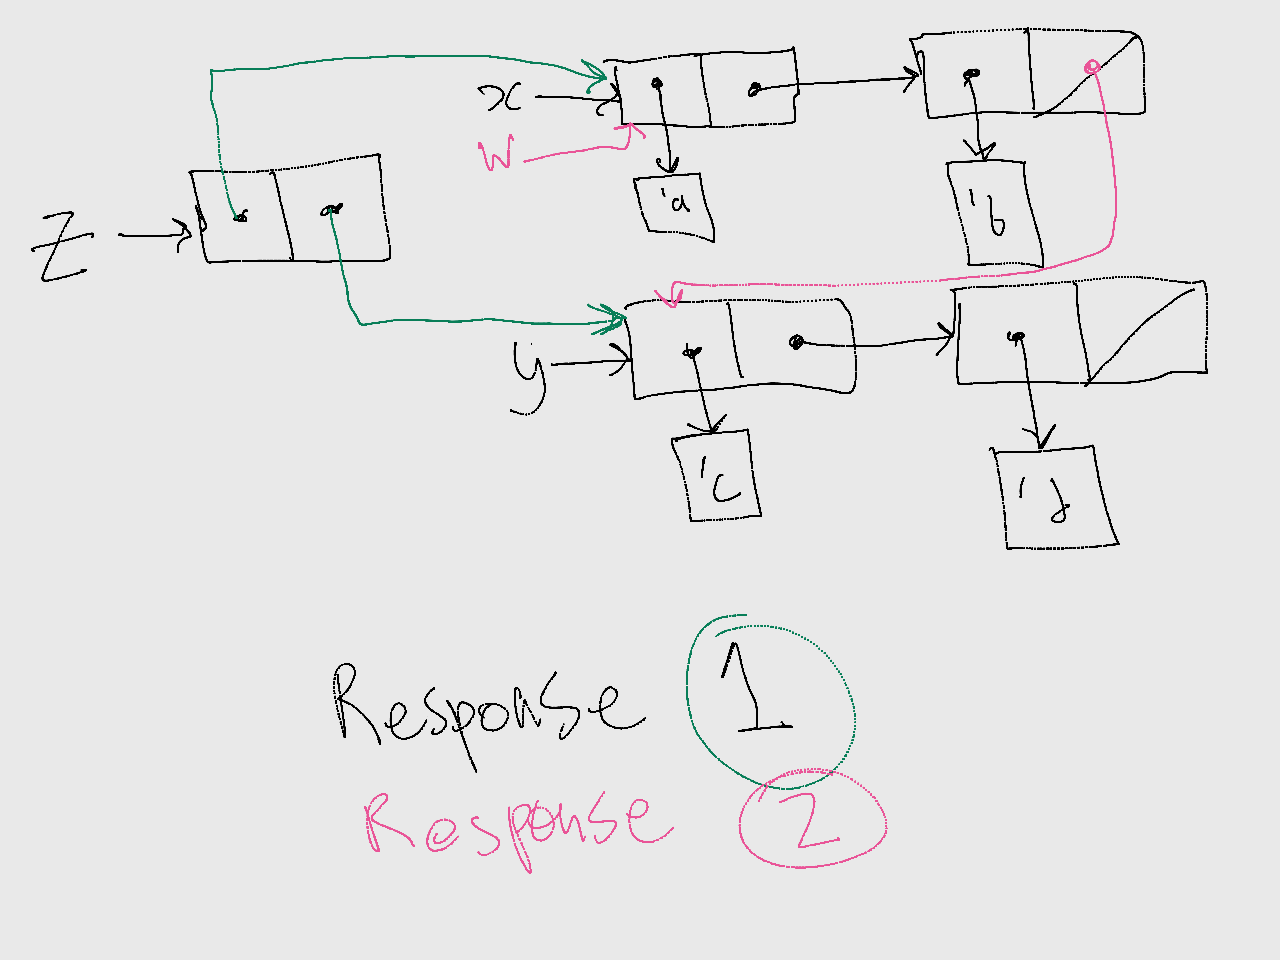 x
w
'a
'b
Z
y
'c
'd
Response 1
Response 2